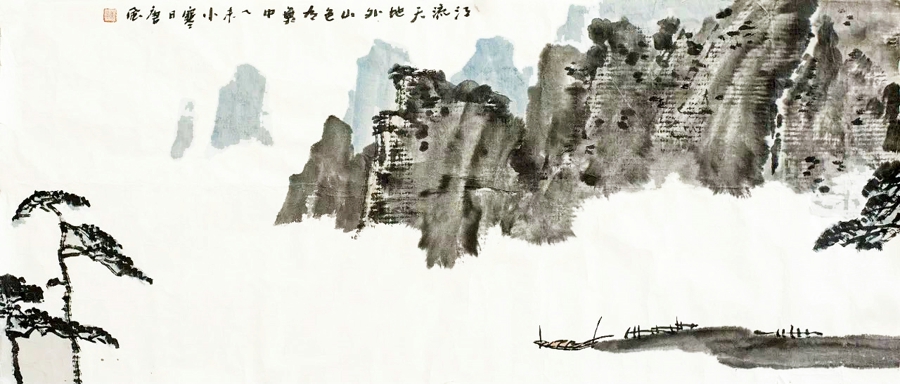 江流天地外山色有無中乙未小寒日唐